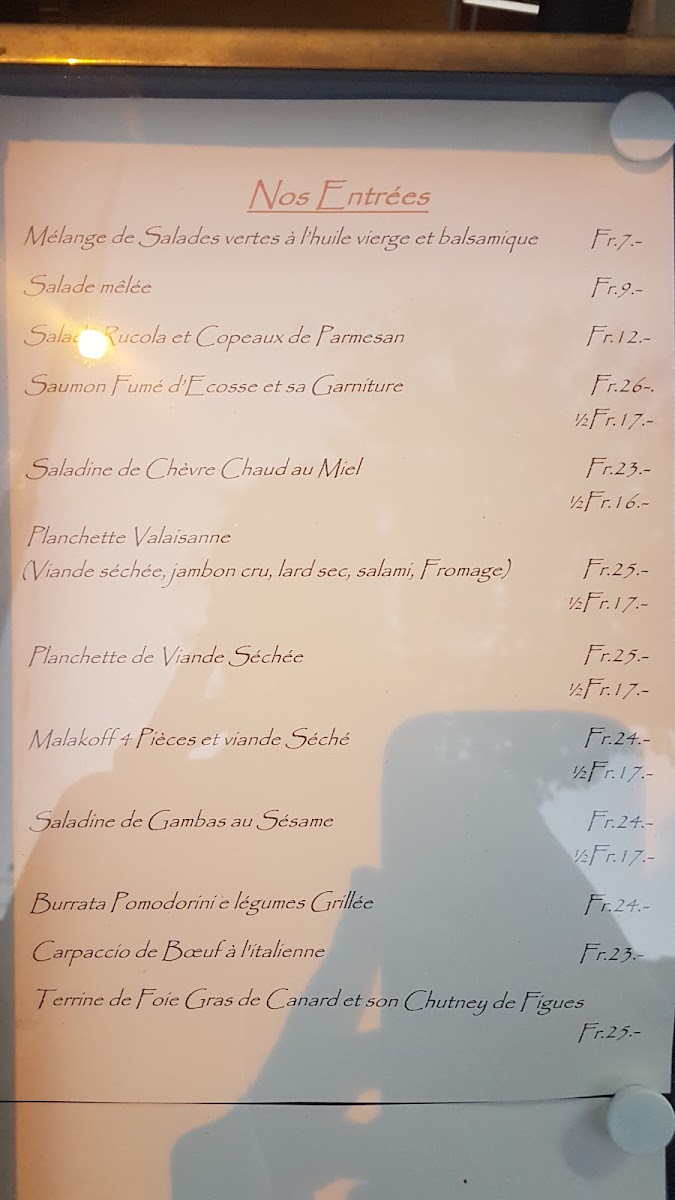 Nos Entrées
Mélange de Salades vertes à l'huile vierge et balsamique Fr.7.-
Salade mêlée Fr.9.-
Salade Rucola et Copeaux de Parmesan Fr.12.-
Saumon Fumé d'Ecosse et sa Garniture Fr.26-.
½Fr.17.-
Saladine de Chèvre Chaud au Miel Fr.23.-
½Fr.16.-
Planchette Valaisanne
(Viande séchée, jambon cru, lard sec, salami, Fromage) Fr.25.-
½Fr.17.-
Planchette de Viande Séchée Fr.25.-
½Fr.17.-
Malakoff 4 Pièces et viande Séché Fr.24.-
½Fr.17.-
Saladine de Gambas au Sésame Fr.24.-
½Fr.17.-
Burrata Pomodorini e légumes Grillée Fr.24.-
Carpaccio de Bœuf à l'italienne Fr.23.-
Terrine de Foie Gras de Canard et son Chutney de Figues
Fr.25.-